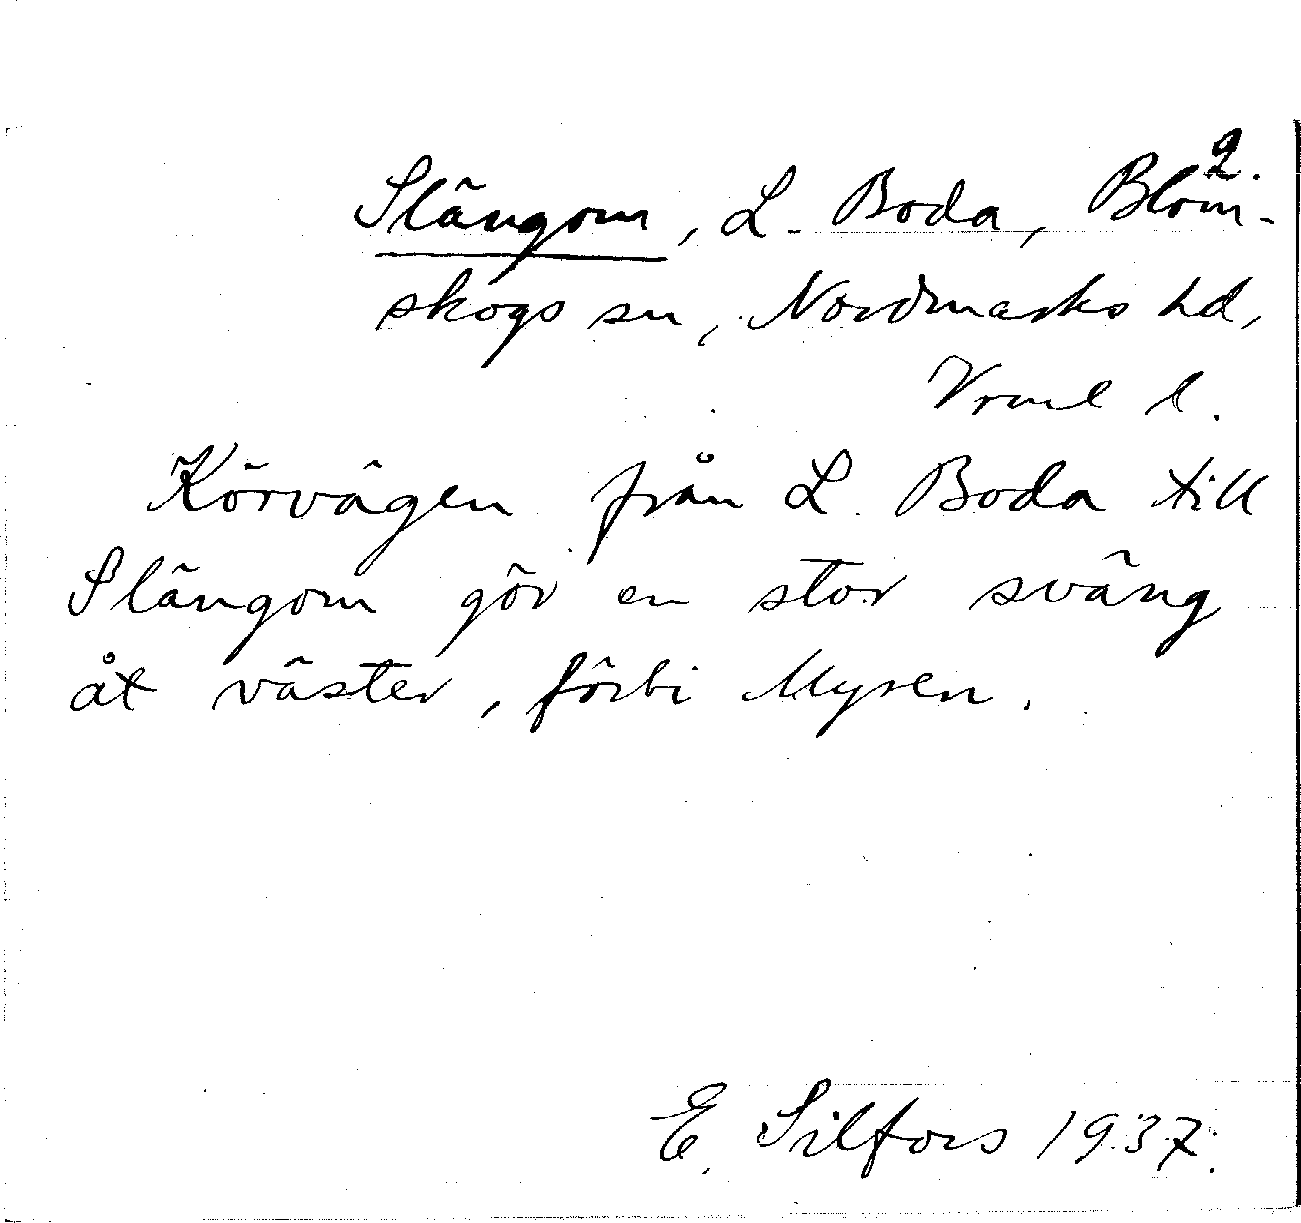 2.
Slängom, L. Boda, Blom-
skogs sn, Nordmarks hd,
Vrml l.
Körvägen från L. Boda till
Slängom gör en stor sväng
åt väster, förbi Myren.
E. Silfors 1937.